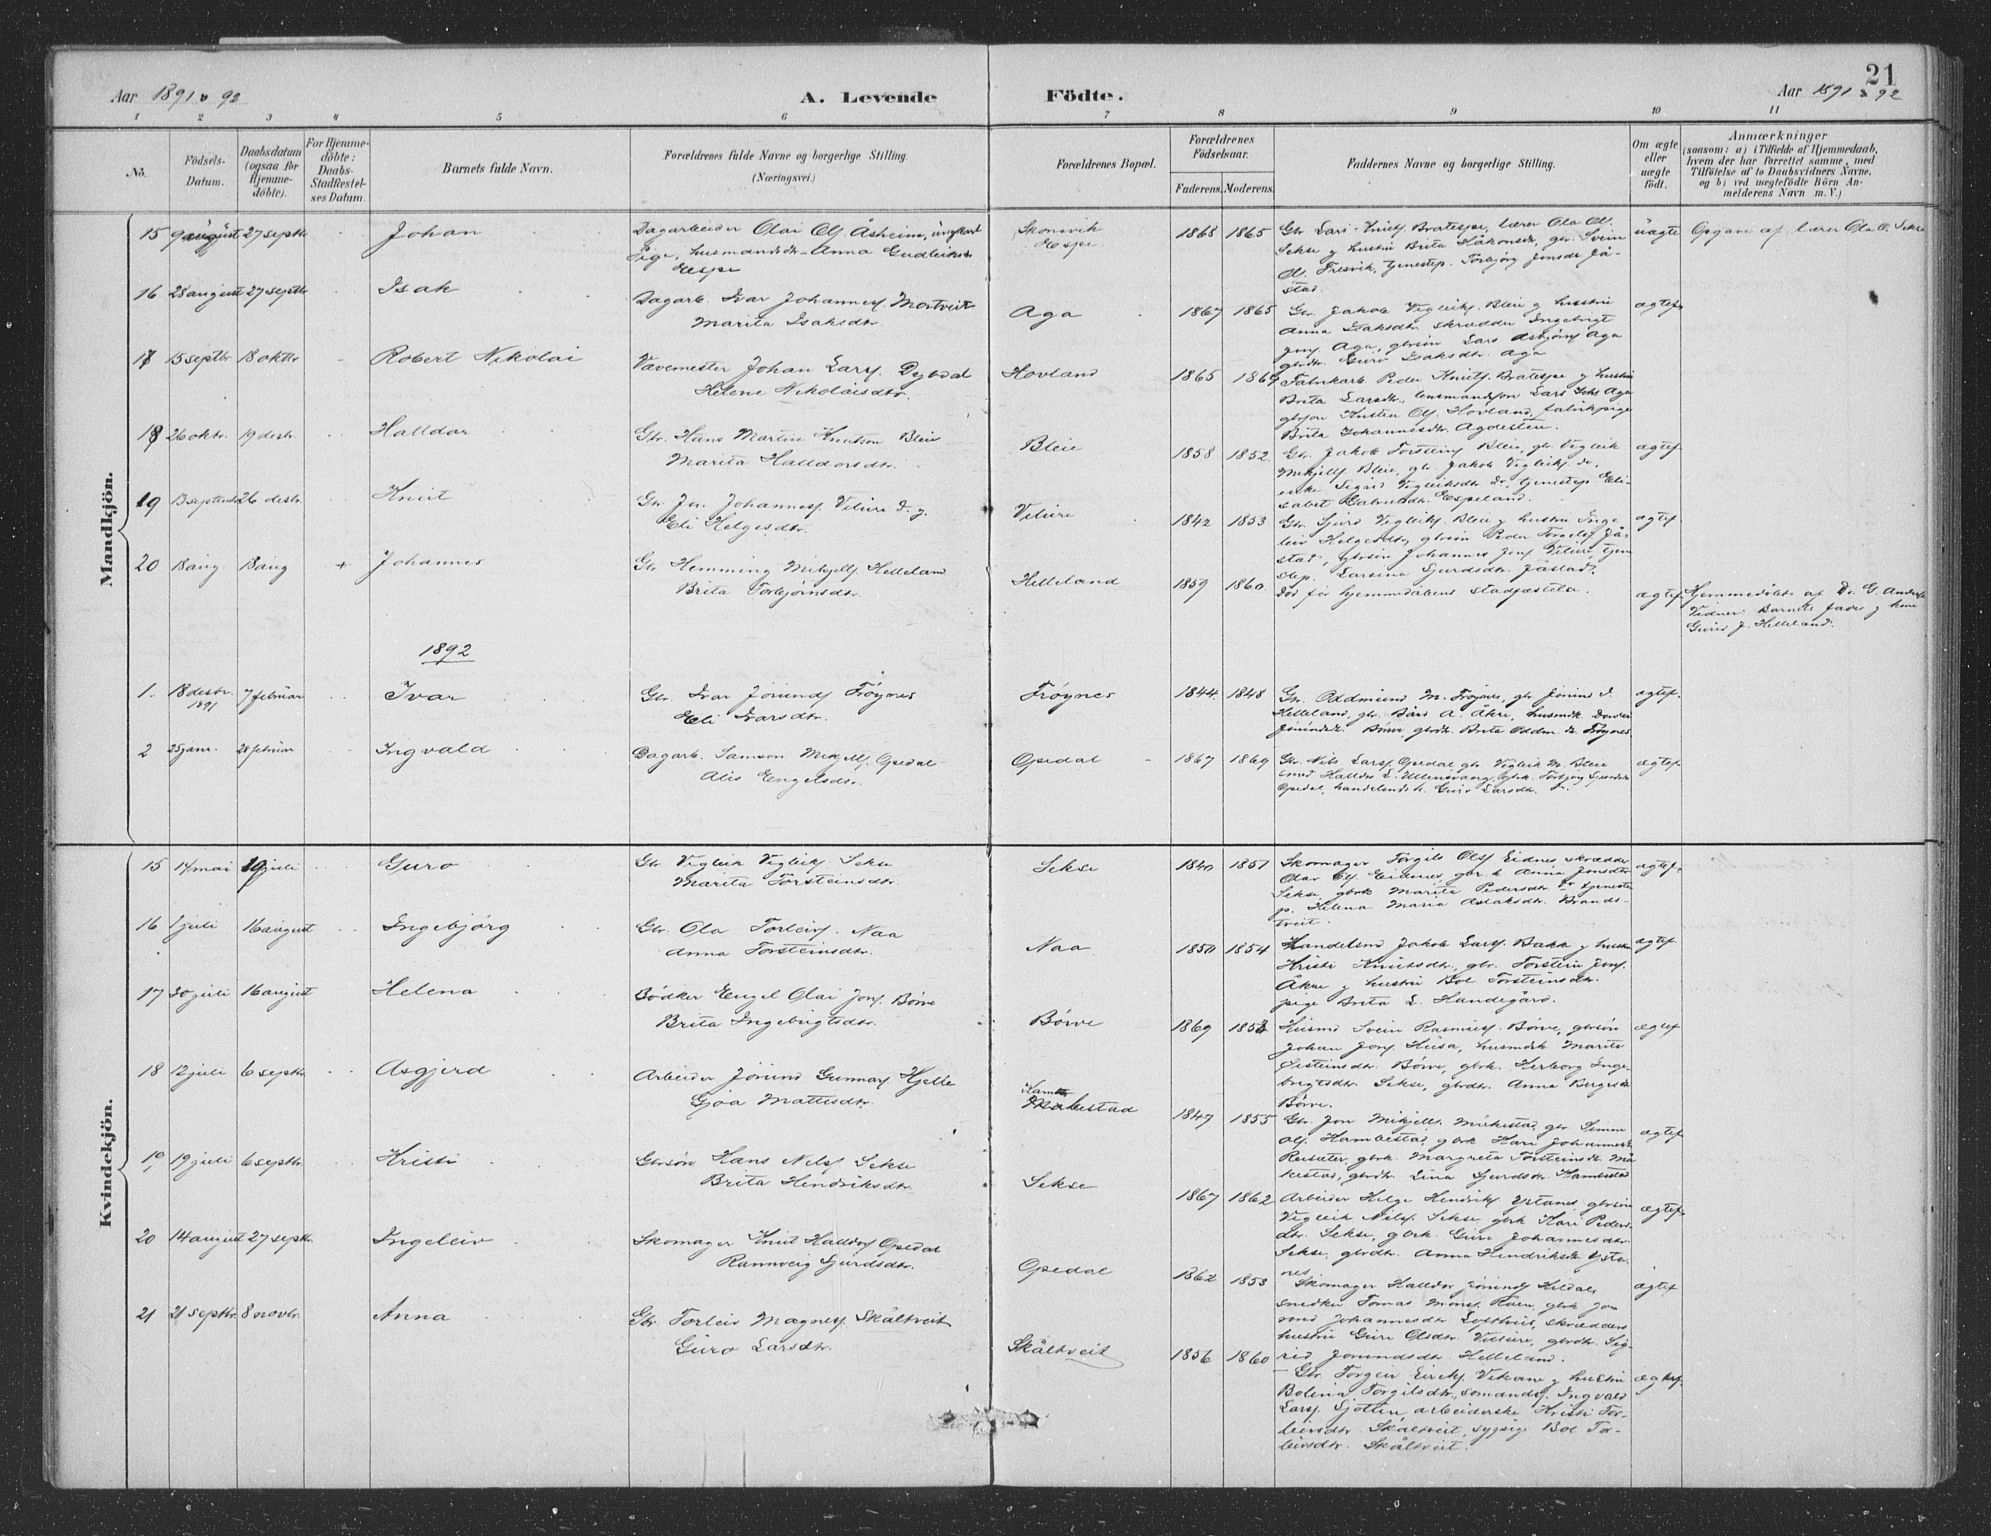 Aar 1891 o 92
A. Levende Födte.
Aar 1891 o 92
21
1 2 3 4 5 6 7 8 9 10 11
No.
Födsels-Datum.
Daabsdatum (ogsaa för Hjemme-döbte).
For Hjemme-döbte: Daabs-Stadfæstel-ses Datum.
Barnets fulde Navn.
Forældrenes fulde Navne og borgerlige Stilling. (Næringsvei.)
Forældrenes Bopæl.
Forældrenes Födselsaar.
Faderens. Moderens.
Faddernes Navne og borgerlige Stilling.
Om ægte eller uægte födt.
Anmærkninger
(saasom: a) i Tilfælde af Hjemmedaab, hvem der har forrettet samme, med Tilföielse af to Daabsvidners Navne, og b) ved uægtefödte Börn An-melderens Navn m. V.)
Mandkjön.
15 9 august 27 septbr Johan
Dagarbeider Olai Ols. Åsheim, ungkarl
Pige, husmandsdtr. Anna Gudleiksdtr
Espe
Skonevik
Espe
1868 1865
Gbr. Lars Knuts. Bratespe, lærer Ola Ols.
Sekse og hustru Brita Håkonsdtr, gbr. Svein
Ols. Fresvik, tjenestep. Torbjørg Jonsdtr. Jå-
stad.
uægte
Opgave af lærer Ola O. Sekse
16 28 august 27 septbr Isak
Dagarb. Ivar Johannes. Mortveit
Marita Isaksdtr.
Aga
1867 1865
Gbr. Jakob Vigleiks. Bleie og hustru
Anna Isaksdtr skrædder Ingebrigt
Jons. Aga, gbrsøn Lars Asbjørns Aga
gbrdtr. Guro Isaksdtr. Aga
ægtef.
17 15 septbr 18 oktbr Robert Nikolai
Vævemester Johan Lars. Dybdal
Helene Nikolaisdtr.
Hovland
1865 1869
Fabrikarb. Peder Knuts. Bratespe og hustru
Brita Larsdtr., lensmandsøn Lars Aga
gbrson Kristen Ols. Hovland, fabrikpige
Brita Johannesdtr. Agdestein.
18 26 oktr. 19 desbr. Halldor
Gbr. Hans Martin Knutson Bleie
Marita Halldorsdtr.
Bleie
1858 1852
Gbr. Jakob Torsteins Bleie, gbr. Vigleik
Mikjells. Bleie, gbr Jakob Vigleiks. do,
enke Sigrid Vigleiksdtr do, tjenestep Eli-
sabet Espeland.
ægtef.
19 13 septembr 26 desbr. Knut
Gbr Jon Johannes. Vilure d. y.
Eli Helgesdtr.
Vilure
1842 1853
Gbr. Sjurd Vigleiks. Bleie og hustru Inge
leiv Helgesdtr, gbrsøn Peder Torgels. Jå-
stad, gbrsøn Johannes Jons. Vilure, tjene
step. Larsina Sjurdsdtr. Jåstad.
ægtef.
20 18 aug. 18 aug + Johannes
Gbr Hemming Mikjells. Helleland
Brita Torbjørnsdtr.
Helleland
1859 1860.
Død før hjemmedåbens stadfæstelse.
ægtef.
Hjemmedøbt af Dr. G. Anders
Vidner: Barnets fader og kone
Guro J. Helleland.
1892
1. 18 desbr. 1891 7 februar Ivar
Gbr. Ivar Jørunds Frøynes
Eli Ivarsdtr.
Frøynes
1844. 1848
Gbr. Oddmund M. Frøynes, gbr. Jørund I.
Helleland, gbr. Bård A. Åkre, husmdk. Dordei
Jørundsdtr Børve, gbrdtr. Brita Oddm. dtr. Frøynes
ægtef.
2 25 janr. 28 februar Ingvald
Dagarb. Samson Mikjells. Opedal
Alis Engelsdtr.
Opedal
1867 1869
Gbr. Nils Lars. Opedal gbr Vigleik M. Bleie
smed Halldor E. Ullensvang, gbrk. Torbjørg Gundersdtr
Opedal, handelsmdk. Guro Larsdtr.
ægtef.
Kvindekjön.
15 14 mai 19 juli Guro
Gbr. Vigleik Vigleiks. Sekse
Marita Torsteinsdtr.
Sekse
1840 1857
Skomager Torgils Ols Eidnes skrædder
Olav Ols. Eidnes, gbr. k Anna Jonsdtr
Sekse, gbrk Marita Pedersdtr do tjeneste
p. Helena Maria Aslaksdtr. Brands-
tveit.
ægtef.
16 1 juli 16 august Ingebjørg
Gbr. Ola Torleivs. Naa
Anna Torsteinsdtr.
Naa
1850 1854
Handelsmd Jakob Lars. Bakke og hustru
Kristi Knutsdtr., gbr. Torstein Jons.
Åkre og hustru Bol Torsteinsdtr.
pige Brita L. Handegård.
ægtef.
17 30 juli 16 august Helena
Bødker Engel Olai Jons. Børve
Brita Ingebrigtsdtr.
Børve
1869 1858
Husmd Svein Rasmus. Børve, gbrsøn
Johan Jons. Husa, husmdk Marita
Eisteinsdtr. Børve, gbrk. Herborg Inge-
brigtsdtr. Sekse, gbrdtr. Anna Birgesdtr
Børve.
ægtef
18 12 juli 6 septbr. Asgjerd
Arbeider Jørund Gunnars Hjelle
Gjoa Mattisdtr.
Hambestad
1847 1855
Gbr. Jon Mikjells. Måkestad, gbr. Simon
Ols. Hambestad, gbrk Kari Johannesdtr
Reisæter, gbrk. Margreta Torsteinsdtr Må
kestad, gbrdtr. Lina Sjurdsdtr. Hambestad
ægtef
19 19 juli 6 septbr. Kristi
Gbrsøn Hans Nils. Sekse
Brita Hendriksdtr.
Sekse
1867 1862
Arbeider Helge Hendriks Ystanes, gbrsøn
Vigleik Nils. Sekse gbrk Kari Peders-
dtr. Sekse, gbrk. Guro Johannesdtr.
Sekse, gbrdtr. Anna Hendriksdtr Ysta
nes
ægtef.
20 14 august 27 septbr. Ingeleiv
Skomager Knut Halldors Opedal
Rannveig Sjurdsdtr.
Opedal
1862 1853
Skomager Halldor Jørunds Hildal,
snedker Tomas Mons. Raen, gbrk Jon
smd Johannesdtr Lofthus, skrædders
hustru Guro Olsdtr. Vilure, gbrdtr. Sig-
rid Jørundsdtr. Helleland.
ægtef
21 21 septbr. 8 novbr. Anna
Gbr. Torleiv Magnes. Skåltveit
Guro Larsdtr.
Skåltveit
1856 1860
Gbr. Torgeir Eiriks. Vikane og hustru
Bolina Torgilsdtr., sømands. Ingvald
Lars. Sjotten arbeiderske Kristi Tor-
leivsdtr. Skåltveit, sypige Bol Tor-
leivsdtr. Skåltveit.
ægtef.